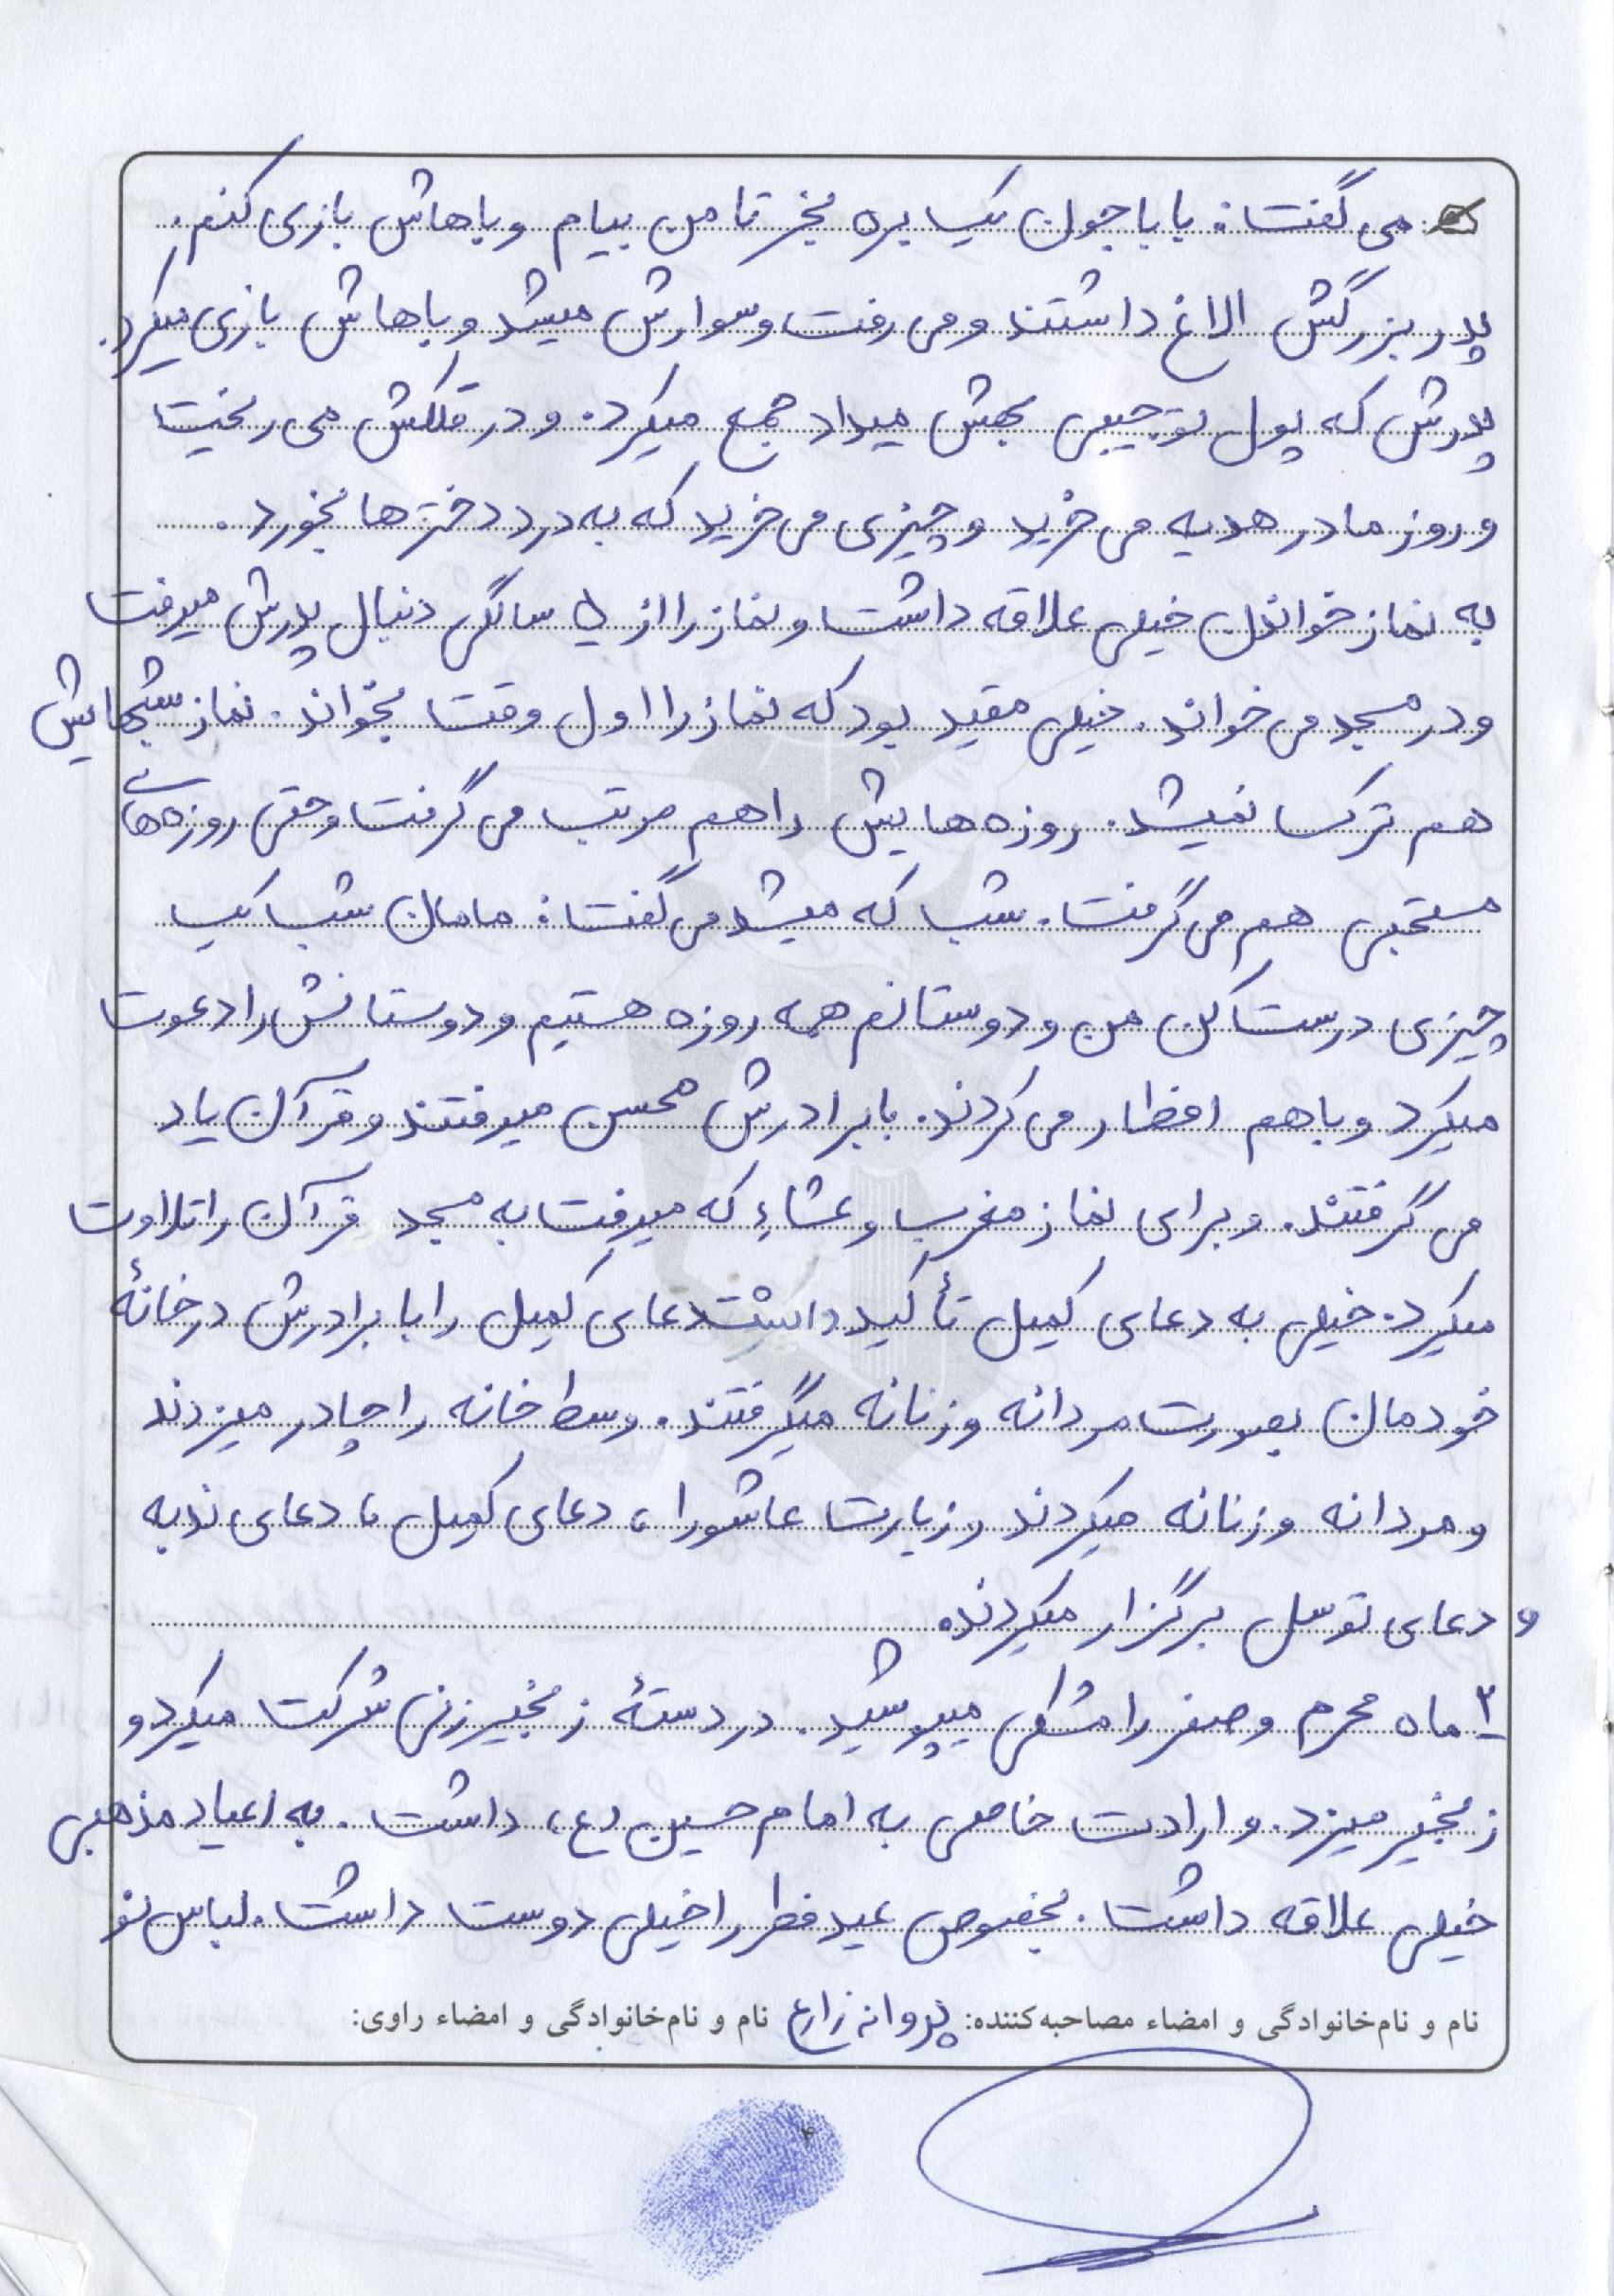 می گفت: بابا جون یک بره بخر تا من بیام و باهاش بازی کنم.
پدر بزرگش الاغ داشتند و می رفت و سوارش میشد و باهاش بازی میکرد.
پدرش که پول توجیبی بهش میداد جمع میکرد. و در قلکش می ریخت
و روز مادر هدیه می خرید و چیزی می خرید که به درد دخترها بخورد.
به نماز خواندن خیلی علاقه داشت و نماز را از ۵ سالگی دنبال پدرش میرفت
و در مسجد می خواند. خیلی مقید بود که نماز را اول وقت بخواند. نماز شبهایش
هم ترک نمیشد. روزه هایش را هم مرتب می گرفت و حتی روزه های
مستحبی هم می گرفت. شب که میشد می گفت: مامان شب یک
چیزی درست کن من و دوستانم همه روزه هستیم و دوستانش را دعوت
میکرد و با هم افطار می کردند. با برادرش محسن میرفتند و قرآن یاد
می گرفتند. و برای نماز مغرب و عشاءِ که میرفت به مسجد قرآن را تلاوت
میکرد. خیلی به دعای کمیل تأکید داشت دعای کمیل را با برادرش در خانهٔ
خودمان بصورت مردانه و زنانه میگرفتند. وسط خانه را چادر میزدند
و مردانه و زنانه میکردند و زیارت عاشورا، دعای کمیل، دعای ندبه
و دعای توسل برگزار میکردند.
۲ ماه محرم و صفر را مشکی میپوشید. در دستهٔ زنجیرزنی شرکت میکرد و
زنجیر میزد. و ارادت خاصی به امام حسین (ع) داشت. به اعیاد مذهبی
خیلی علاقه داشت. بخصوص عید فطر را خیلی دوست داشت. لباس نو
نام و نام‌خانوادگی و امضاء مصاحبه‌کننده: پروانه زارع نام و نام‌خانوادگی و امضاء راوی:
۴